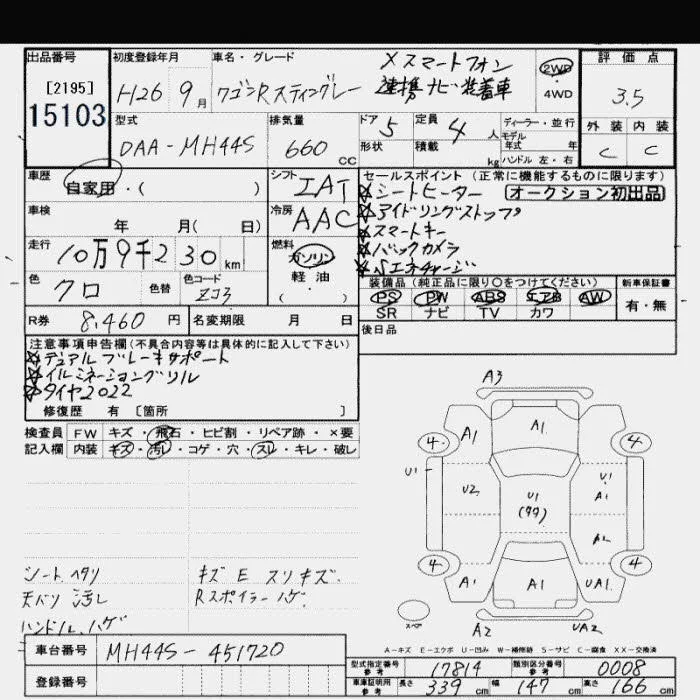 出品番号
[2195]
15103
初度登録年月
H26 9月
車名・グレード
ワゴンRスティングレー
×スマートフォン
連携ナビ装着車
2WD
4WD
評価点
3.5
外装 内装
C C
型式
DAA-MH44S
排気量
660 CC
ドア 5
形状
定員 4 人
積載 kg
ディーラー・並行
モデル
年式 年
ハンドル 左・右
車歴
自家用・( )
シフト
IAT
セールスポイント (正常に機能するものに限ります)
☆シートヒーター オークション初出品
☆アイドリングストップ
☆スマートキー
☆バックカメラ
☆Sエネチャージ
車検
年 月( 日)
冷房
AAC
走行
10万9千230km
燃料
ガソリン
軽油
( ・ )
色
クロ
色替
色コード
ZJ3
装備品 (純正品に限り○をつけてください)
PS PW ABS エアB AW
SR ナビ TV カワ
新車保証書
有・無
R券 8,460 円
名変期限 月 日
後日品
注意事項申告欄(不具合内容等は具体的に記入して下さい)
☆デュアルブレーキサポート
☆イルミネーショングリル
☆タイヤ2022
修復歴 有 [箇所 ]
検査員 FW キズ・飛石・ヒビ割・リペア跡・×要
記入欄 内装 キズ・汚レ・コゲ・穴・スレ・キレ・破レ
シートヘタリ
天バリ汚し
ハンドルハゲ
キズ E スリキズ.
Rスポイラーハゲ.
A3
A1 A1
4 4
U1 U2 U1 (99) U1 A1
A2
4 4
A1 A1 UA1
スペア
A2 UA2
A-キズ E-エクボ U-凹み W-補修跡 S-サビ C-腐食 XX-交換済
車台番号 MH44S-451720
登録番号
型式指定番号 参考 17814 類別区分番号 参考 0008
車庫証明用 参考 長さ 339 cm 幅 147 cm 高さ 166 cm